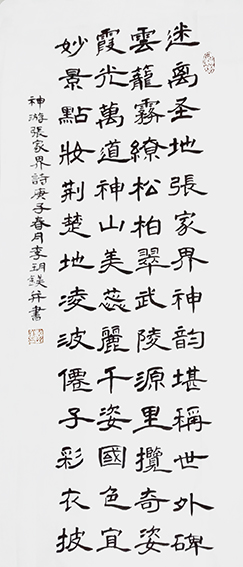 迷离圣地張家界神韵堪稱世外碑
雲籠霧繚松柏翠武陵源里攬奇姿
霞光萬道神山美蕊麗千姿國色宜
妙景點妝荆楚地凌波僊子彩衣披
神游張家界詩庚子春月李玥并書